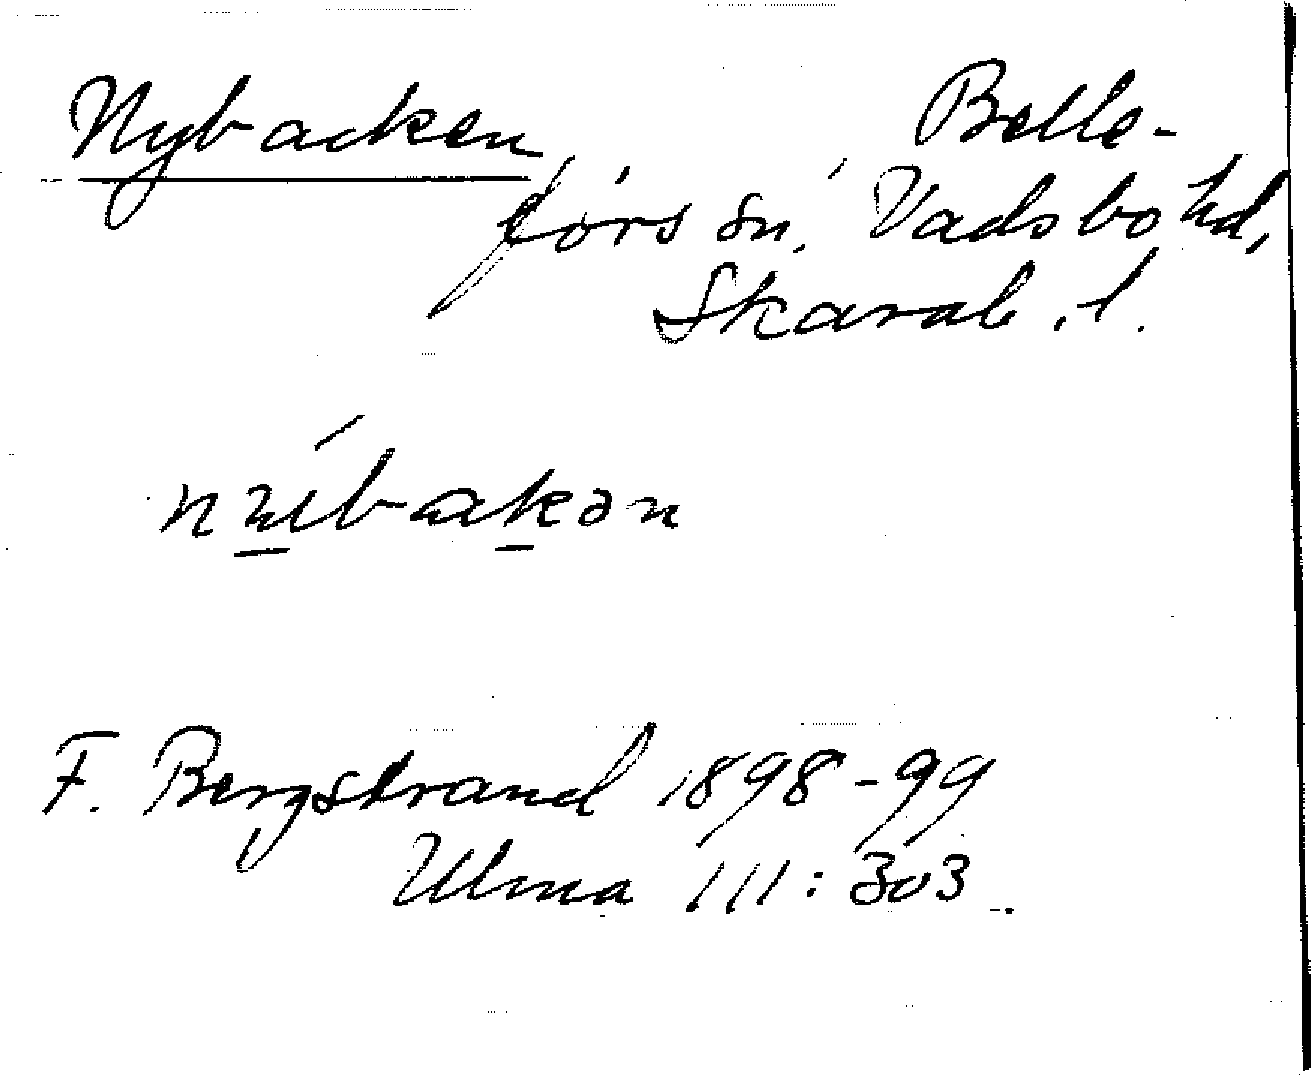 Nybacken Belle-
förs sn, Vadsbo hd,
Skarab. l.
nybakən
F. Bergstrand 1898-99
Ulma 111:303.